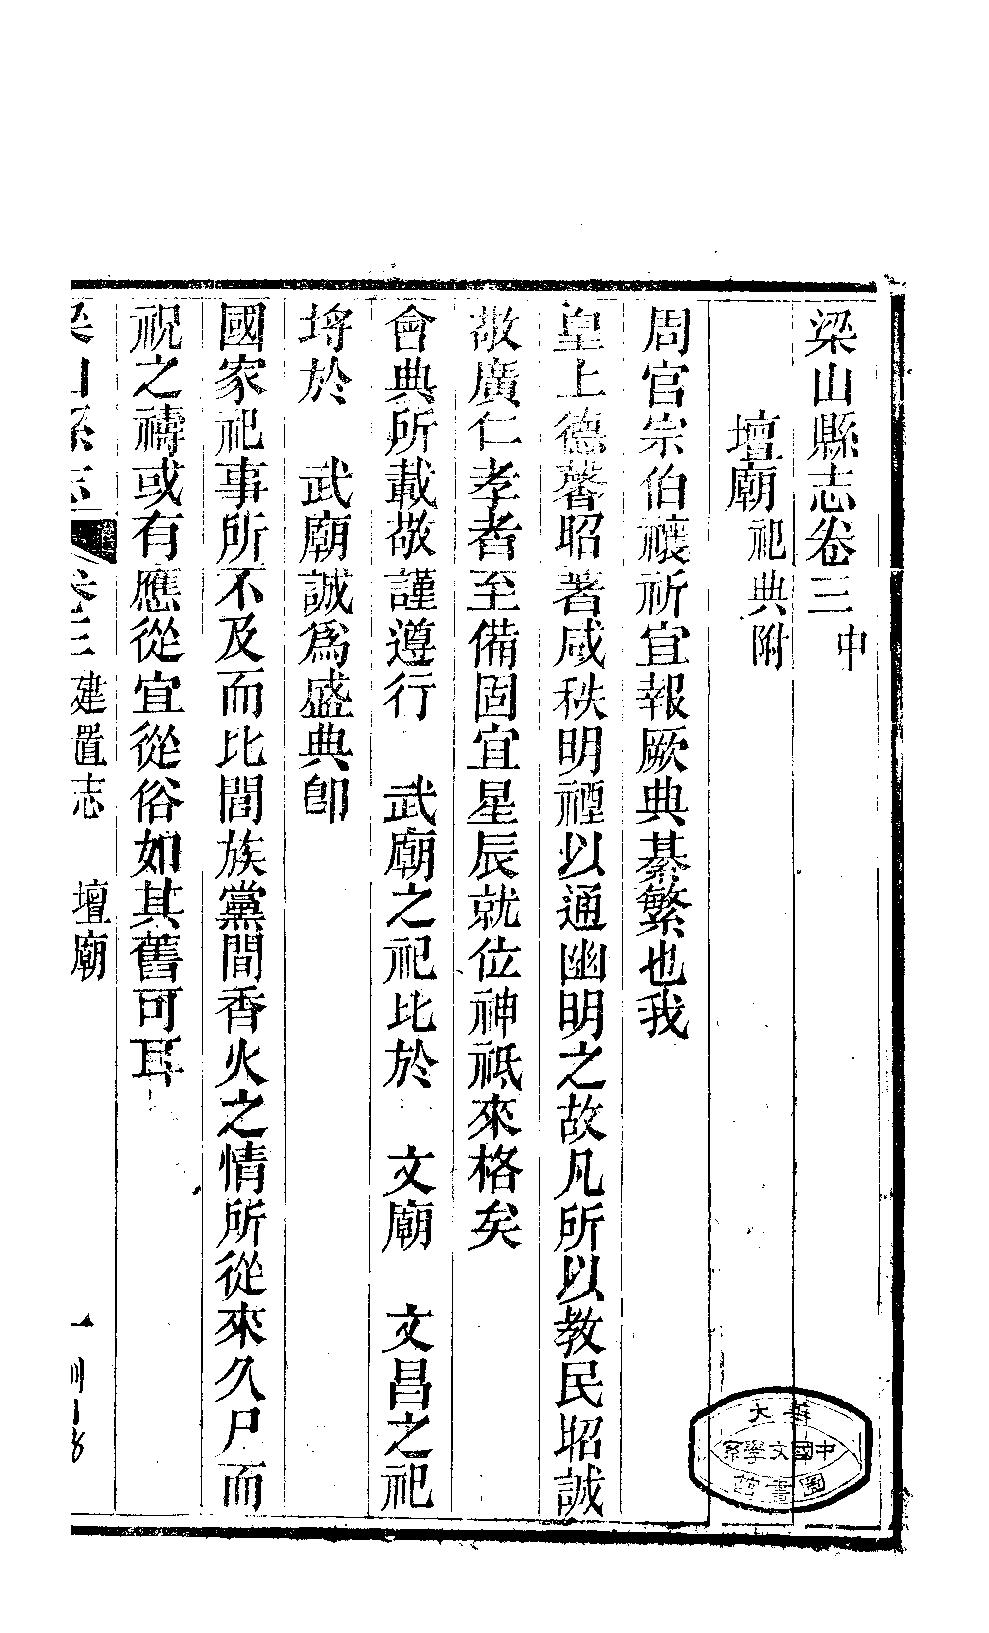 梁山縣志卷三中
壇廟祀典附
周官宗伯禳祈宜報厥典綦繁也我
皇上德馨昭著咸秩明禋以通幽明之故凡所以教民昭誠
敬廣仁孝者至備固宜星辰就位神祗來格矣
會典所載敬謹遵行 武廟之祀比於 文廟 文昌之祀
埒於 武廟誠爲盛典卽
國家祀事所不及而比閭族黨間香火之情所從來久尸而
祝之禱或有應從宜從俗如其舊可耳
梁山縣志 卷三 建置志 壇廟 一
中國文學系